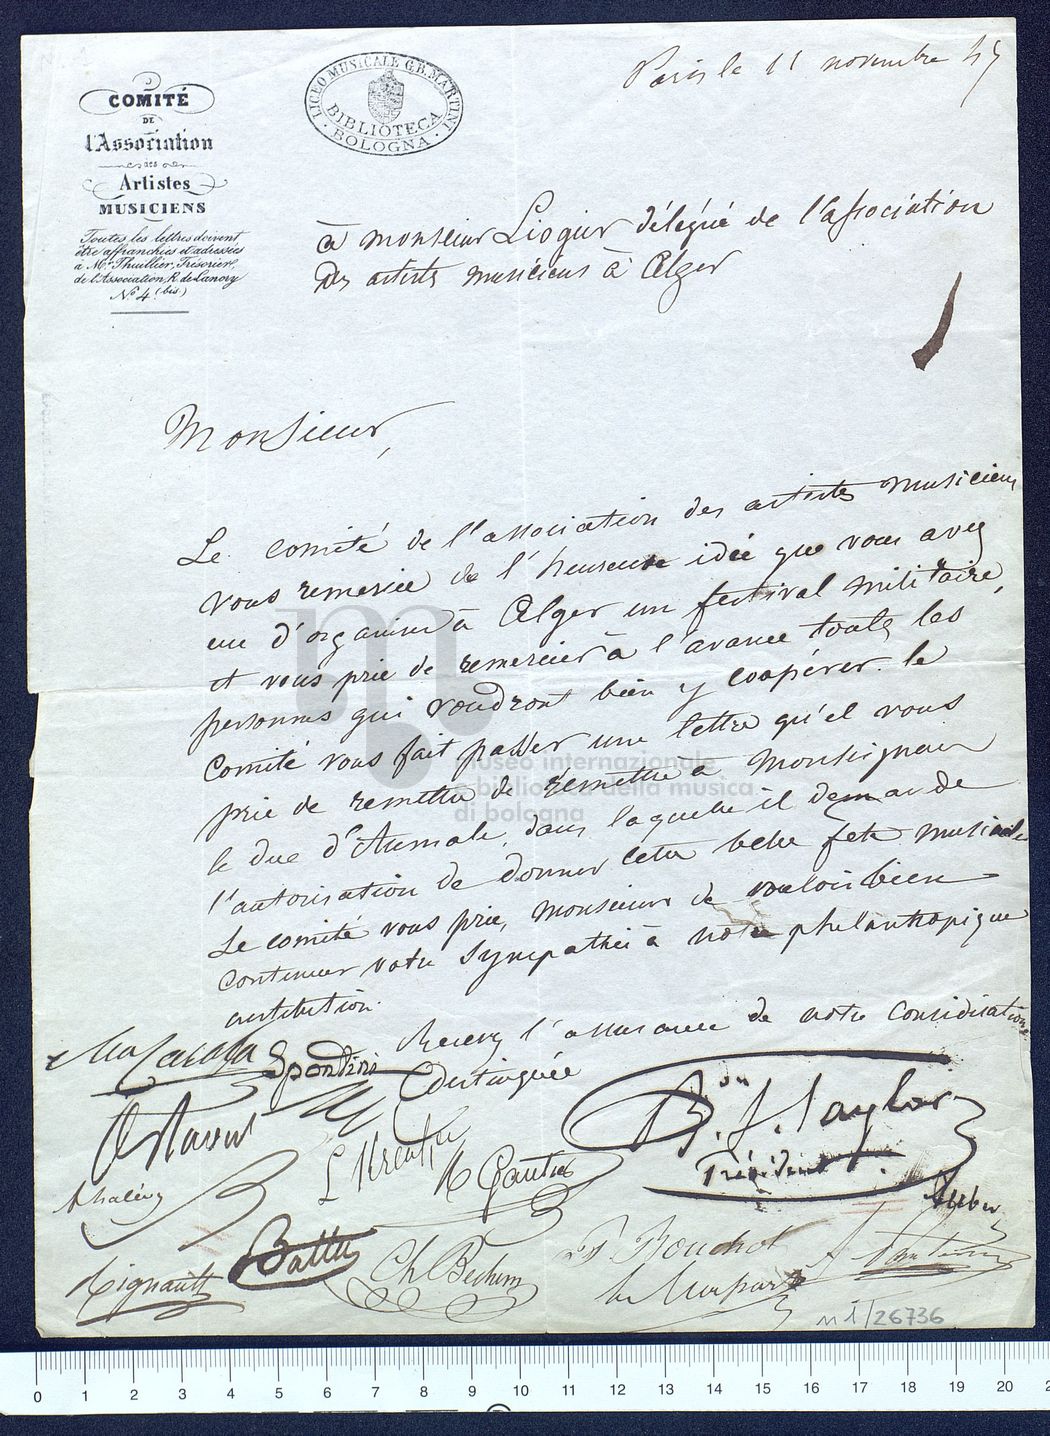 COMITÉ
DE
l'Association
des
Artistes
MUSICIENS
Toutes les lettres doivent
être affranchies et adressées
à Mr. Thuillier, Trésorier,
de l'Association, R. de Lancry
No. 4 (bis)
LICEO MUSICALE G.B. MARTINI
BIBLIOTECA
BOLOGNA
Paris le 11 novembre 47
à monsieur Liogier délégué de l'association
des artistes musiciens à Alger
Monsieur,
Le comité de l'association des artistes musiciens
vous remercie de l'heureuse idée que vous avez
eue d'organiser à Alger un festival militaire,
et vous prie de remercier à l'avance toutes les
personnes qui voudront bien y coopérer. le
comité vous fait passer une lettre qu'il vous
prie de remettre à Monseigneur
le duc d'Aumale, dans laquelle il demande
l'autorisation de donner cette belle fête musicale
Le comité vous prie, monsieur de vouloir bien
continuer votre sympathie à notre philantropique
institution.
Recevez l'assurance de notre considération
distinguée
Spontini
Bon J. Taylor
Président
L Kreutzer
A Gautier
F halévy
Auber
Battu
Ch Bechem
Rignault
P. Bouchot
museo internazionale
e biblioteca della musica
di bologna
n 1/26736
0 1 2 3 4 5 6 7 8 9 10 11 12 13 14 15 16 17 18 19 20